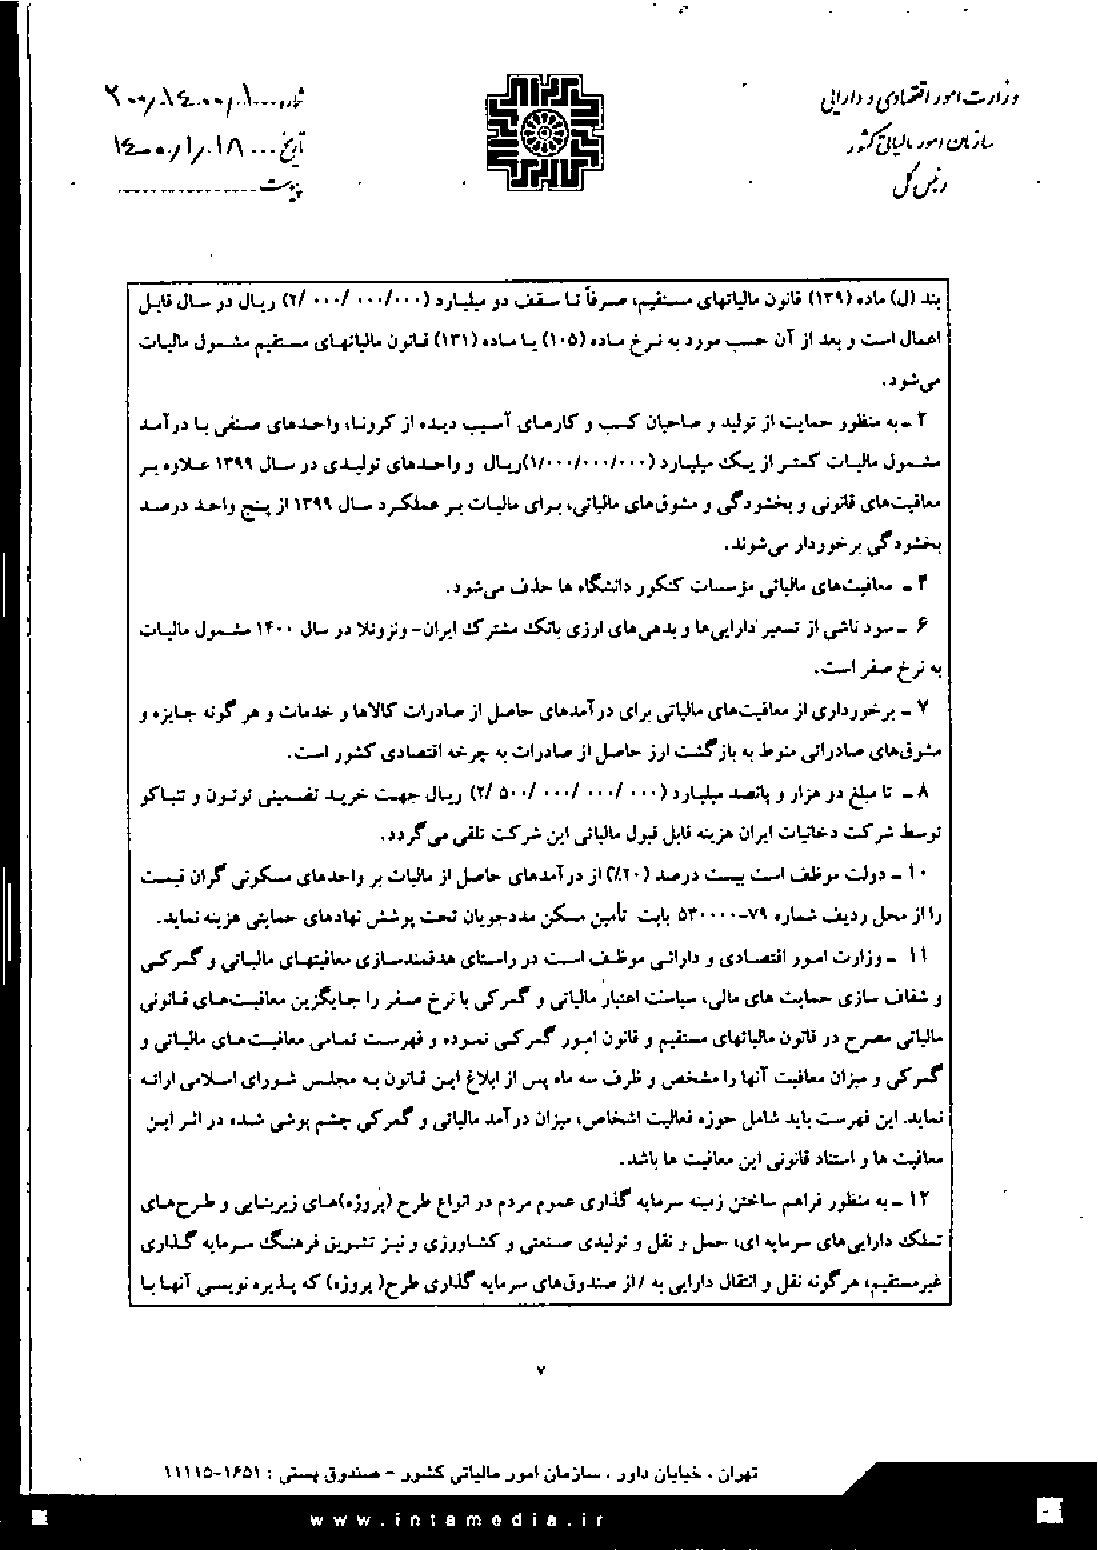 وزارت امور اقتصادی و دارایی
سازمان امور مالیاتی کشور
رئیس کل
شماره: ۲۰۰/۱۴۰۰/۱
تاریخ: ۱۴۰۰/۱/۱۸
پیوست
بند (ل) ماده (۱۳۹) قانون مالیاتهای مستقیم، صرفاً تا سقف دو میلیارد (۲/۰۰۰/۰۰۰/۰۰۰) ریال در سال قابل
اعمال است و بعد از آن حسب مورد به نرخ ماده (۱۰۵) یا ماده (۱۳۱) قانون مالیاتهای مستقیم مشمول مالیات
می‌شود.
۲ - به منظور حمایت از تولید و صاحبان کسب و کارهای آسیب دیده از کرونا، واحدهای صنفی با درآمد
مشمول مالیات کمتر از یک میلیارد (۱/۰۰۰/۰۰۰/۰۰۰) ریال و واحدهای تولیدی در سال ۱۳۹۹ علاوه بر
معافیت‌های قانونی و بخشودگی و مشوق‌های مالیاتی، برای مالیات بر عملکرد سال ۱۳۹۹ از پنج واحد درصد
بخشودگی برخوردار می‌شوند.
۴ - معافیت‌های مالیاتی مؤسسات کنکور دانشگاه ها حذف می‌شود.
۶ - سود ناشی از تسعیر دارایی‌ها و بدهی‌های ارزی بانک مشترک ایران- ونزوئلا در سال ۱۴۰۰ مشمول مالیات
به نرخ صفر است.
۷ - برخورداری از معافیت‌های مالیاتی برای درآمدهای حاصل از صادرات کالاها و خدمات و هر گونه جایزه و
مشوق‌های صادراتی منوط به بازگشت ارز حاصل از صادرات به چرخه اقتصادی کشور است.
۸ - تا مبلغ دو هزار و پانصد میلیارد (۲/۵۰۰/۰۰۰/۰۰۰/۰۰۰) ریال جهت خرید تضمینی توتون و تنباکو
توسط شرکت دخانیات ایران هزینه قابل قبول مالیاتی این شرکت تلقی می‌گردد.
۱۰ - دولت موظف است بیست درصد (۲۰٪) از درآمدهای حاصل از مالیات بر واحدهای مسکونی گران قیمت
را از محل ردیف شماره ۷۹-۵۳۰۰۰۰ بابت تأمین مسکن مددجویان تحت پوشش نهادهای حمایتی هزینه نماید.
۱۱ - وزارت امور اقتصادی و دارائی موظف است در راستای هدفمندسازی معافیتهای مالیاتی و گمرکی
و شفاف سازی حمایت های مالی، سیاست اعتبار مالیاتی و گمرکی با نرخ صفر را جایگزین معافیت‌های قانونی
مالیاتی مصرح در قانون مالیاتهای مستقیم و قانون امور گمرکی نموده و فهرست تمامی معافیت‌های مالیاتی و
گمرکی و میزان معافیت آنها را مشخص و ظرف سه ماه پس از ابلاغ این قانون به مجلس شورای اسلامی ارائه
نماید. این فهرست باید شامل حوزه فعالیت اشخاص، میزان درآمد مالیاتی و گمرکی چشم پوشی شده در اثر این
معافیت ها و استناد قانونی این معافیت ها باشد.
۱۲ - به منظور فراهم ساختن زمینه سرمایه گذاری عموم مردم در انواع طرح (پروژه)های زیربنایی و طرح‌های
تملک دارایی‌های سرمایه ای، حمل و نقل و تولیدی صنعتی و کشاورزی و نیز تشویق فرهنگ سرمایه گذاری
غیرمستقیم، هرگونه نقل و انتقال دارایی به / از صندوق‌های سرمایه گذاری طرح( پروژه) که پذیره نویسی آنها با
۷
تهران ، خیابان داور ، سازمان امور مالیاتی کشور - صندوق پستی : ۱۶۵۱-۱۱۱۱۵
www.intamedia.ir